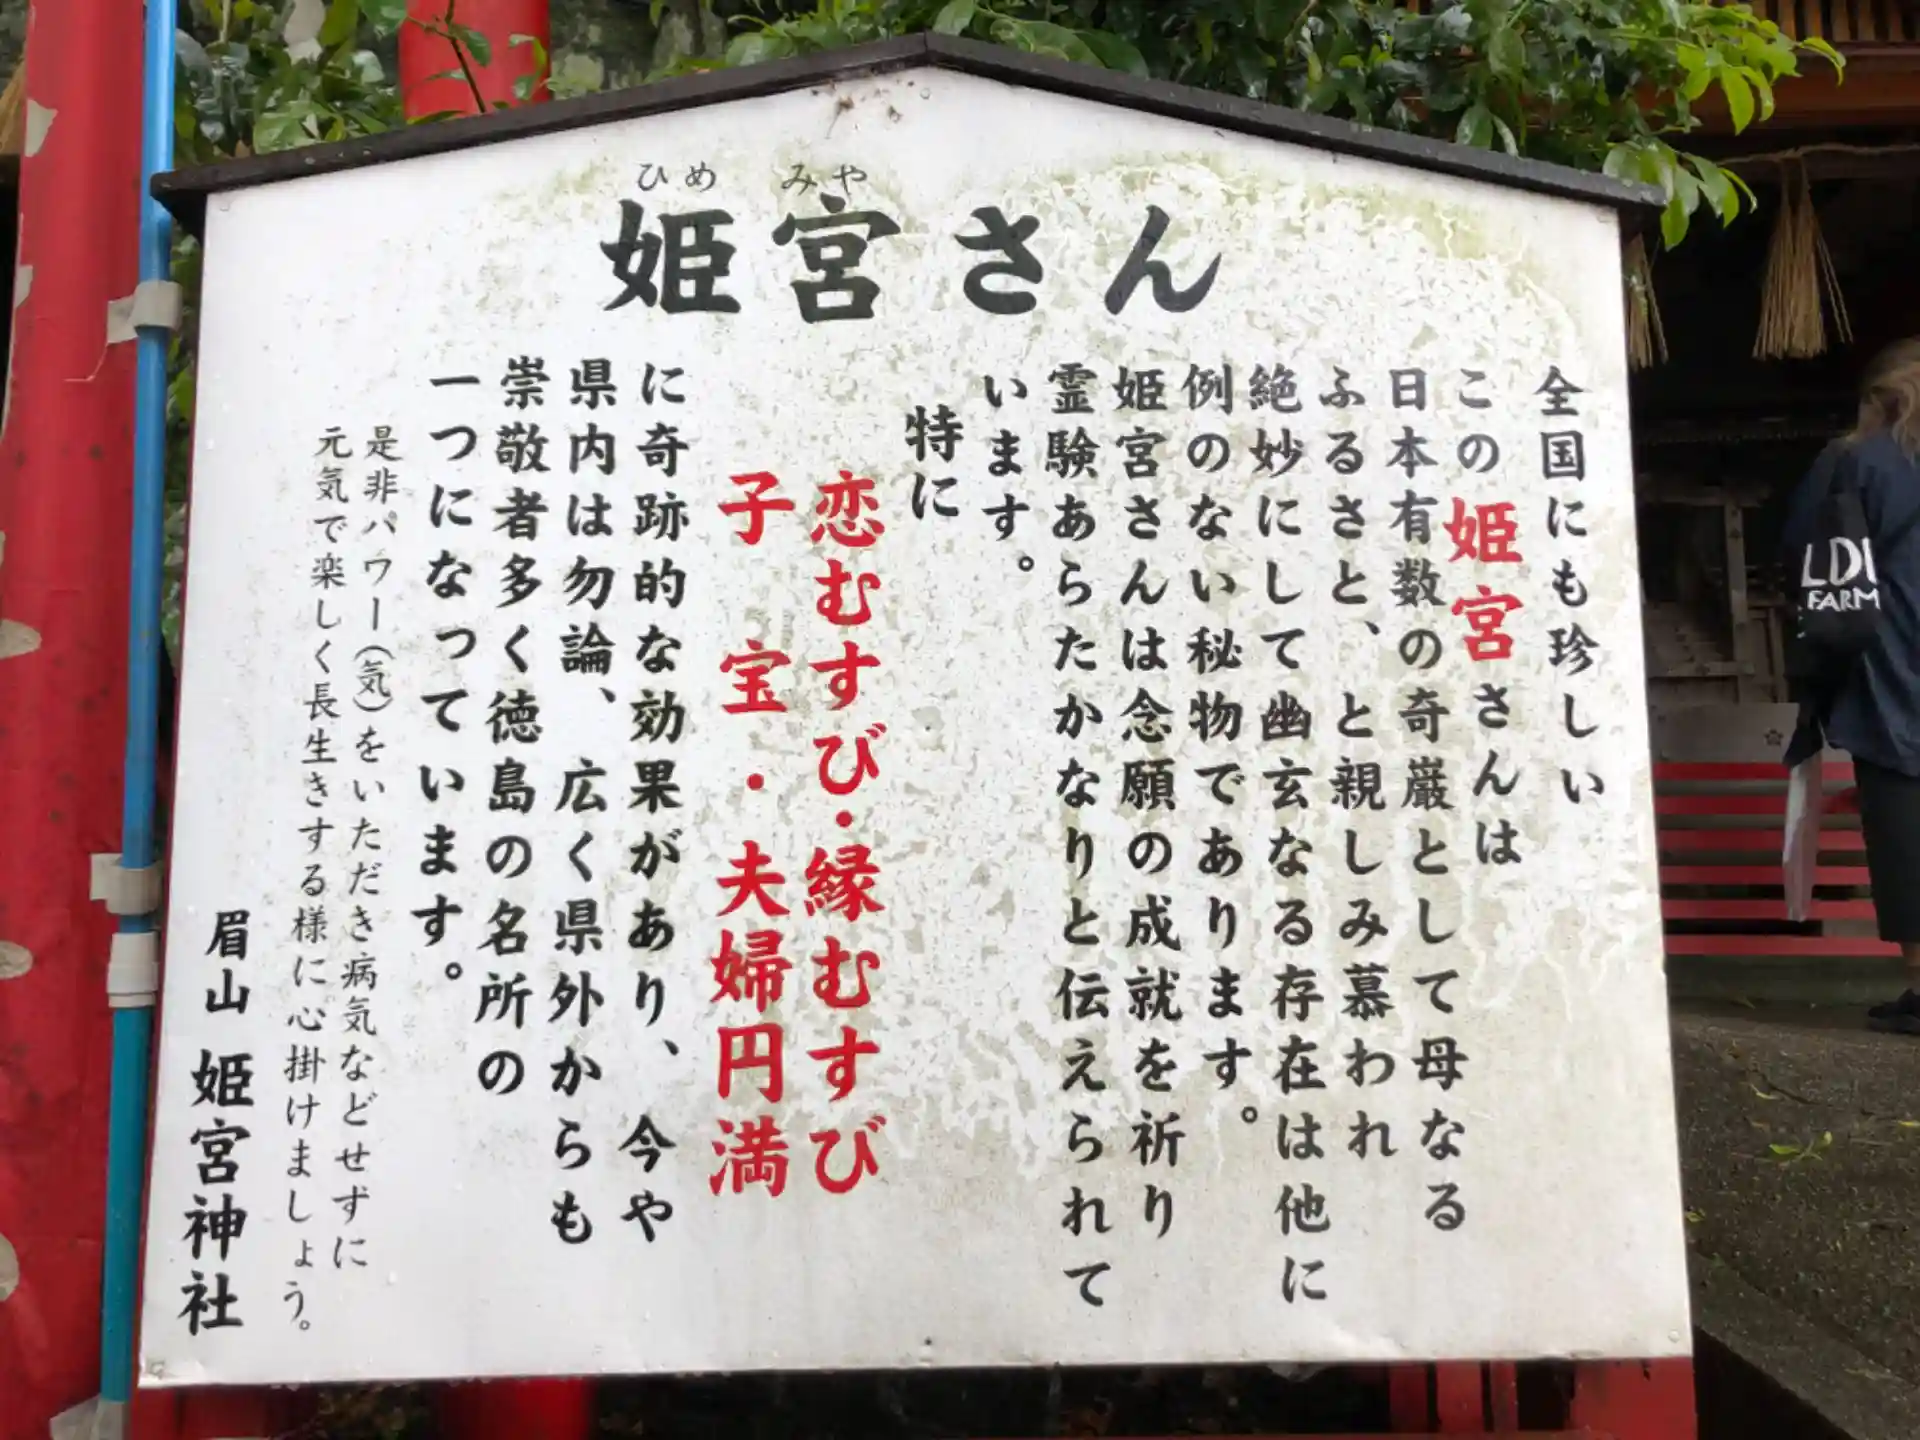 ひめ みや
姫宮さん
全国にも珍しい
この姫宮さんは
日本有数の奇巌として母なる
ふるさと、と親しみ慕われ
絶妙にして幽玄なる存在は他に
例のない秘物であります。
姫宮さんは念願の成就を祈り
霊験あらたかなりと伝えられて
います。
特に
恋むすび・縁むすび
子宝・夫婦円満
に奇跡的な効果があり、今や
県内は勿論、広く県外からも
崇敬者多く徳島の名所の
一つになっています。
是非パワー(気)をいただき病気などせずに
元気で楽しく長生きする様に心掛けましょう。
眉山 姫宮神社
LDI
FARM